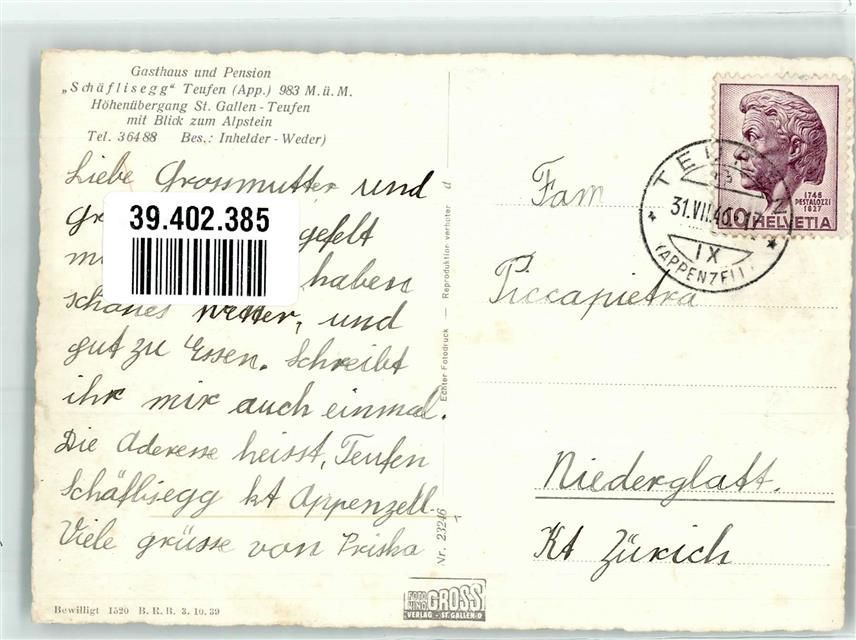 Gasthaus und Pension
„Schäflisegg" Teufen (App.) 983 M.ü.M.
Höhenübergang St. Gallen - Teufen
mit Blick zum Alpstein
Tel. 36488 Bes.: Inhelder - Weder)
Liebe Grossmutter und
gefelt
haben
schönes Wetter, und
gut zu Essen. Schreibt
ihr mir auch einmal.
Die Aderesse heisst, Teufen
Schäflisegg kt Appenzell.
Viele grüsse von Priska
39.402.385
Bewilligt 1520 B. R. B. 3. 10. 39
Nr. 23246 Echter Fotodruck — Reproduktion verboten d
FOTO GROSS
VERLAG - ST. GALLEN O
1746
PESTALOZZI
1827
HELVETIA
TEUFEN
31.VII.46.
IX
(APPENZELL)
Fam
Piccapietra
Niederglatt.
Kt Zürich